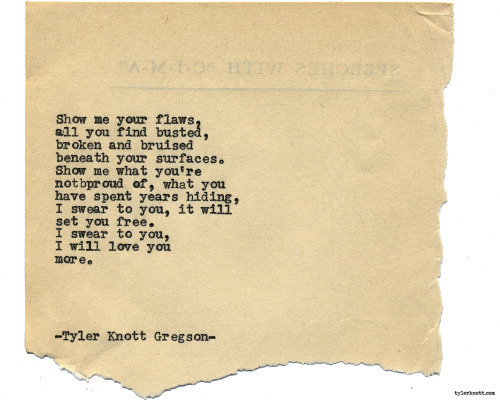 SPEECHES WITH "C-I-M-A"
Show me your flaws,
all you find busted,
broken and bruised
beneath your surfaces.
Show me what you're
notbproud of, what you
have spent years hiding,
I swear to you, it will
set you free.
I swear to you,
I will love you
more.
-Tyler Knott Gregson-
tylerknott.com